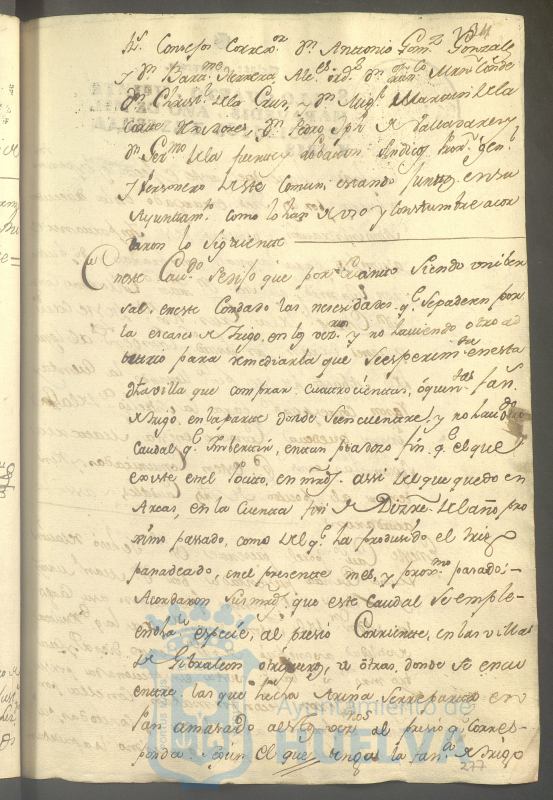 Conss.os Correx.or Dn. Antonio Gom.z Gonzale
y Dn. Bar.me Herrera, Al.es ord.s Dn. Man.l Conde
Dn. Christ.l de la Cruz, y Dn. Mig.l Marin de la
Corte Rexidores, Dn. Pedro Jph. de Valladares y
Dn. Ger.mo de la fuente Sindico Pror. gen.l
y Personero deste Comun, estando Juntos en su
Ayuntam.to como lo han de uso y Constumbre acor
daron lo siguiente
En este Cav.do se dijo que por Quanto siendo Univer
sal en este Condado las nesesidades q.e se padesen por
la escases de trigo, en los y no haviendo otro ad
bitrio para remediarla que se experim.ta en esta
dha villa que comprar quatrocientas, o quin.tas fan.s
de trigo en la parte donde se encuentre, y no hav.do
Caudal q.e Imbertir, en tan piadoso fin q.e el que
existe en el Posito, en mrs. assi del que quedo en
Arcas, en la Cuenta fin de Dizre. del año pro
ximo pasado, como del q.e ha produsido el trigo
panadeado, en el presente mes, y prox.mo pasado:-
Acordaron Sus mrds. que este Caudal se emple
en dha espesie, al presio Corriente, en las villas
de Gibraleon, u otras, donde se encu
entre, las que hecha Arina se reparta en
pan amasado al al presio q.e corres
ponda Segun el que tenga la fan.a de trigo
277
Ayuntamiento de
HUELVA